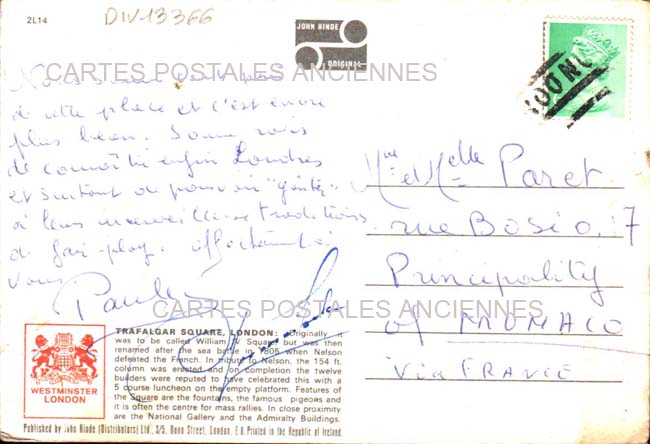 2L14
DIV-13366
JOHN HINDE
ORIGINAL
CARTES POSTALES ANCIENNES
de cette place et c'est encore
plus beau. Sommes
de connaître enfin Londres
et surtout de pouvoir "goûter"
à leurs merveilleuses traditions
de fair-play. Affectueusement à
vous
Paule
Mme et Melle Paret
rue Bosio. 7
Principality
of MONACO
via FRANCE
CARTES POSTALES ANCIENNES
TRAFALGAR SQUARE, LONDON: Originally it
was to be called William IV Square but was then
renamed after the sea battle in 1805 when Nelson
defeated the French. In tribute to Nelson, the 154 ft.
column was erected and on completion the twelve
builders were reputed to have celebrated this with a
5 course luncheon on the empty platform. Features of
the Square are the fountains, the famous pigeons and
it is often the centre for mass rallies. In close proximity
are the National Gallery and the Admiralty Buildings.
WESTMINSTER
LONDON
Published by John Hinde (Distributors) Ltd., 3/5, Dunn Street, London, E.8. Printed in the Republic of Ireland.